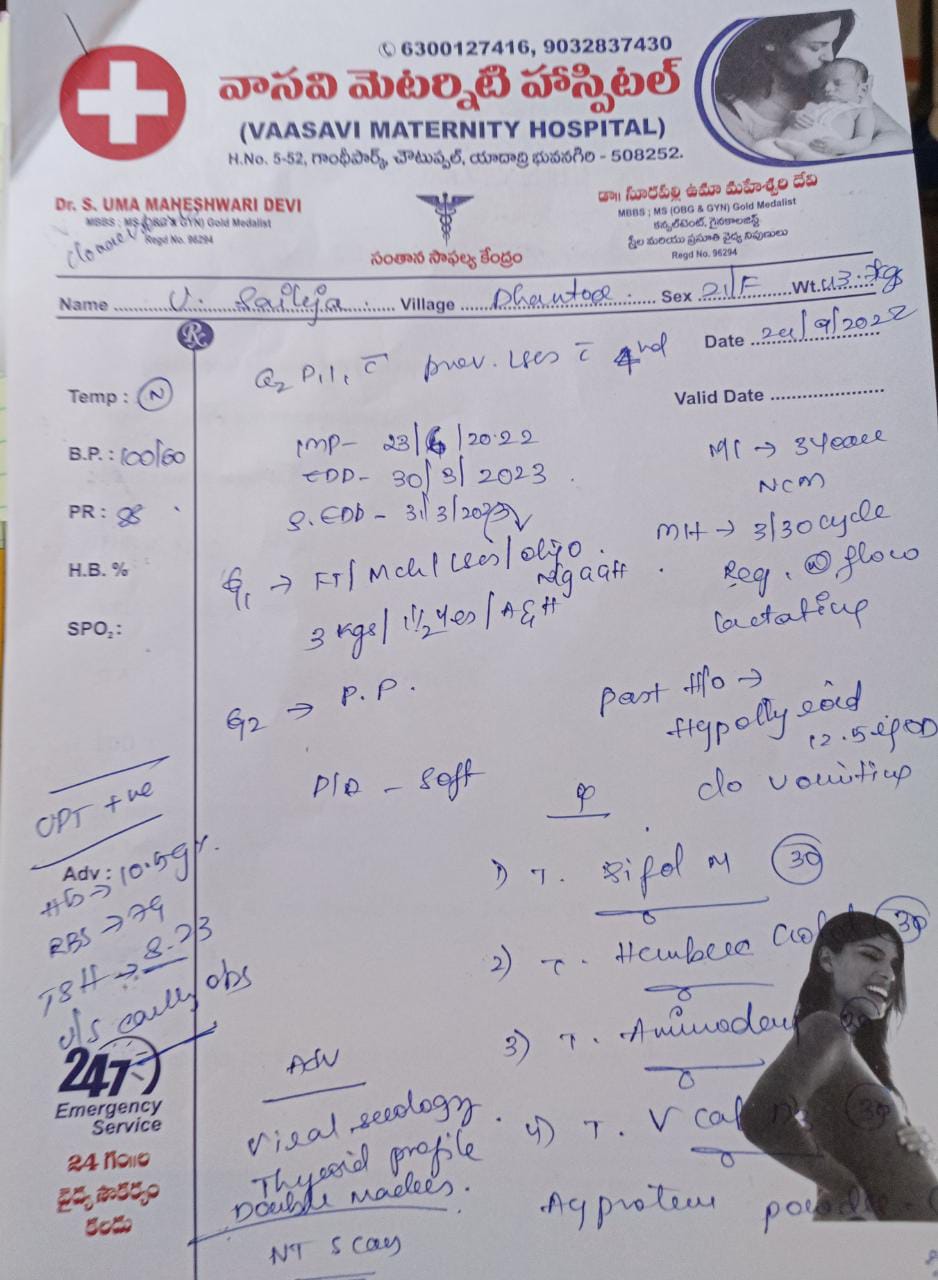 ✆ 6300127416, 9032837430
వాసవి మెటర్నిటి హాస్పిటల్
(VAASAVI MATERNITY HOSPITAL)
H.No. 5-52, గాంధీపార్క్, చౌటుప్పల్, యాదాద్రి భువనగిరి - 508252.
Dr. S. UMA MAHESHWARI DEVI
MBBS ; MS (OBG & GYN) Gold Medalist
Regd No. 96294
డా॥ సూరపల్లి ఉమా మహేశ్వరి దేవి
MBBS ; MS (OBG & GYN) Gold Medalist
కన్సల్టెంట్, గైనకాలజిస్ట్
స్త్రీల మరియు ప్రసూతి వైద్య నిపుణులు
Regd No. 96294
సంతాన సాఫల్య కేంద్రం
Name V. Saileja Village Sex 21/F Wt. 43 kg
Rx
Date 24/9/2022
G2 P1 L1 c̄ prev. LSCS c̄
Temp : N
Valid Date
B.P. : 100/60
LMP- 23/6/2022
EDD- 30/3/2023
S. EDD - 31/3/2023
ML → 3 Years
NCM
PR : 88
MH → 3/30 cycle
Reg. flow
Lactating
H.B. %
G1 → FT/ Mch/ LSCS/ oligo
3 kgs/ 1½ yrs/ A&H
SPO₂:
G2 → P.P.
Past H/o →
Hypothyroid
12.5 OD
P/A - Soft
c/o vomiting
UPT +ve
Adv :
Hb → 10.5 gr.
RBS → 79
TSH → 8.23
U/S early obs
1) T. Sifol M 30
2) T. 30
3) T. 30
4) T. V Cal 30
protein powder
247
Emergency
Service
24 గం॥ల
వైద్య సౌకర్యం
కలదు
Adv
Viral serology
Thyroid profile
Double Marker.
NT Scan